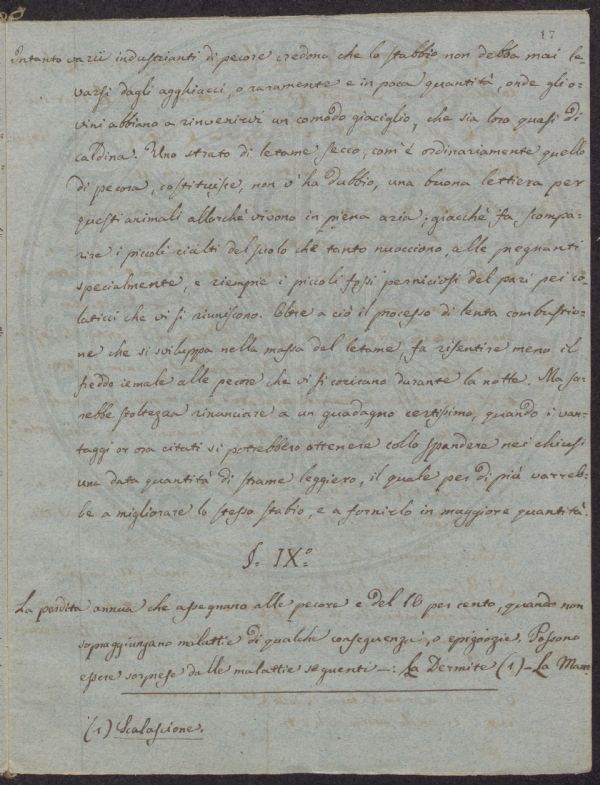 17
Intanto varii industrianti di pecore credono che lo stabbio non debba mai le
varsi dagli agghiacci, o raramente e in poca quantità, onde gli o-
vini abbiano a rinvenirvi un comodo giaciglio, che sia loro quasi di
caldina. Uno strato di letame secco, com'è ordinariamente quello
di pecora, costituisce, non v'ha dubbio, una buona lettiera per
questi animali allorché vivono in piena aria; giacché fa scompa-
rire i piccoli rialti del suolo che tanto nuocciono, alle pregnanti
specialmente, e riempie i piccoli fossi perniciosi del pari pei co-
laticci che vi si riuniscono. Oltre a ciò il processo di lenta combustio-
ne che si sviluppa nella massa del letame, fa risentire meno il
freddo iemale alle pecore che vi si coricano durante la notte. Ma sa-
rebbe stoltezza rinunciare a un guadagno certissimo, quando i van-
taggi or ora citati si potrebbero ottenere collo spandere nei chiusi
una data quantità di strame leggiero, il quale per di più varreb-
be a migliorare lo stesso stabio, e a fornirlo in maggiore quantità.
§. IX.°
La perdita annua che assegnano alle pecore e del 10 per cento, quando non
sopraggiungano malattie di qualche conseguenza, o epizoozie. Possono
essere sorprese dalle malattie seguenti —: La Dermite (1) — La Mam-
(1) Scalascione.